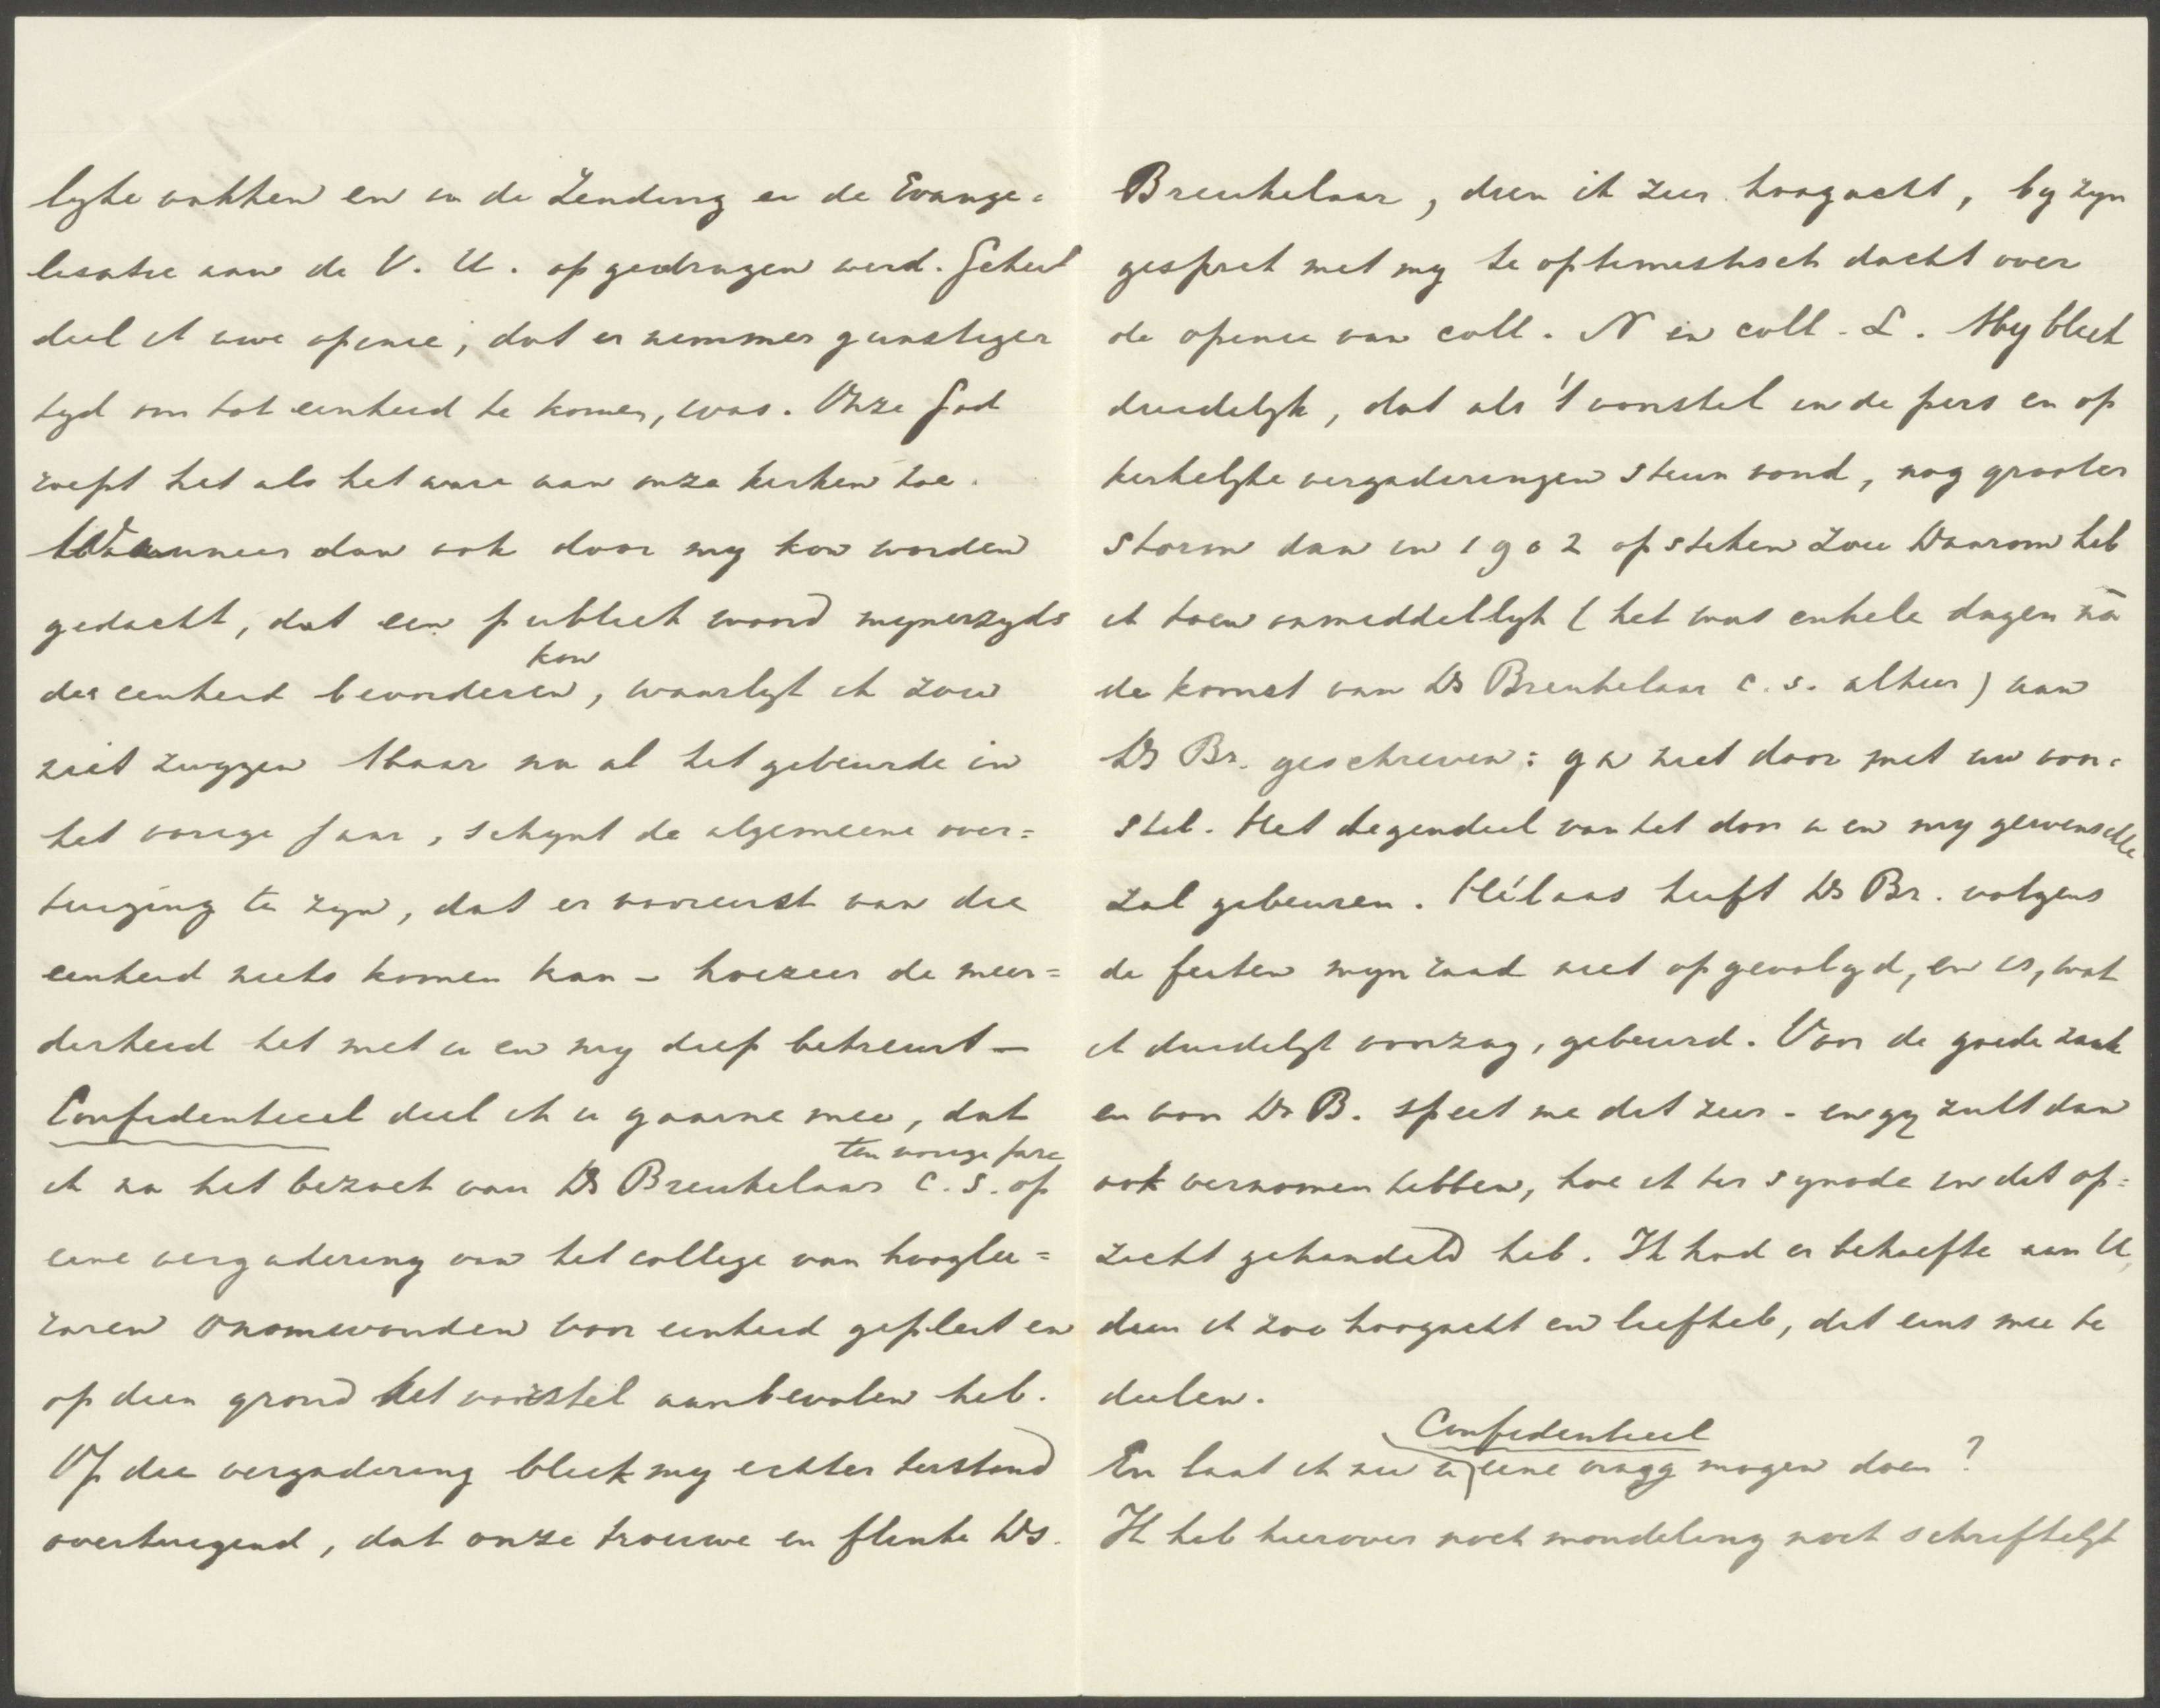 lyke vakken en in de Zending en de Evange=
lisatie aan de V. U. opgedragen werd. Geheel
deel ik uwe opinie, dat er nimmer gunstiger
tyd om tot eenheid te komen, was. Onze God
roept het als het ware aan onze kerken toe.
Wanneer dan ook door my kon worden
gedacht, dat een publiek woord mynerzyds
kon
die eenheid bevorderen, waarlyk ik zou
niet zwygen Maar na al het gebeurde in
het vorige jaar, schynt de algemeene over=
tuiging te zyn, dat er vooreerst van die
eenheid niets komen kan – hoezeer de meer=
derheid het met u en my diep betreurt –
Confidentieel deel ik u gaarne mee, dat
ten vorige jare
ik na het bezoek van Ds Breukelaar c.s. op
eene vergadering van het college van hooglee=
raren onomwonden voor eenheid gepleit en
op dien grond het voorstel aanbevolen heb.
Op die vergadering bleek my echter terstond
overtuigend, dat onze trouwe en flinke Ds.
Breukelaar, dien ik zeer hoogacht, by zyn
gesprek met my te optimistisch dacht over
de opinie van coll. N en coll. L. My bleek
duidelyk, dat als 't voorstel in de pers en op
kerkelyke vergaderingen steun vond, nog grooter
storm dan in 1902 opsteken zou Daarom heb
ik toen onmiddellyk (het was enkele dagen na
de komst van Ds Breukelaar c.s. alhier) aan
Ds Br. geschreven: ga niet door met uw voor=
stel. Het tegendeel van het door u en my gewenschte
zal gebeuren. Hélaas heeft Ds Br. volgens
de feiten myn raad niet opgevolgd, en is, wat
ik duidelyk voorzag, gebeurd. Voor de goede zaak
en voor Ds B. speet me dit zeer – en gy zult dan
ook vernomen hebben, hoe ik ter synode in dit op=
zicht gehandeld heb. Ik had er behoefte aan U,
dien ik zoo hoogacht en liefheb, dit eens mee te
deelen.
Confidentieel
En laat ik nu u eene vraag mogen doen?
Ik heb hierover noch mondeling noch schriftelyk